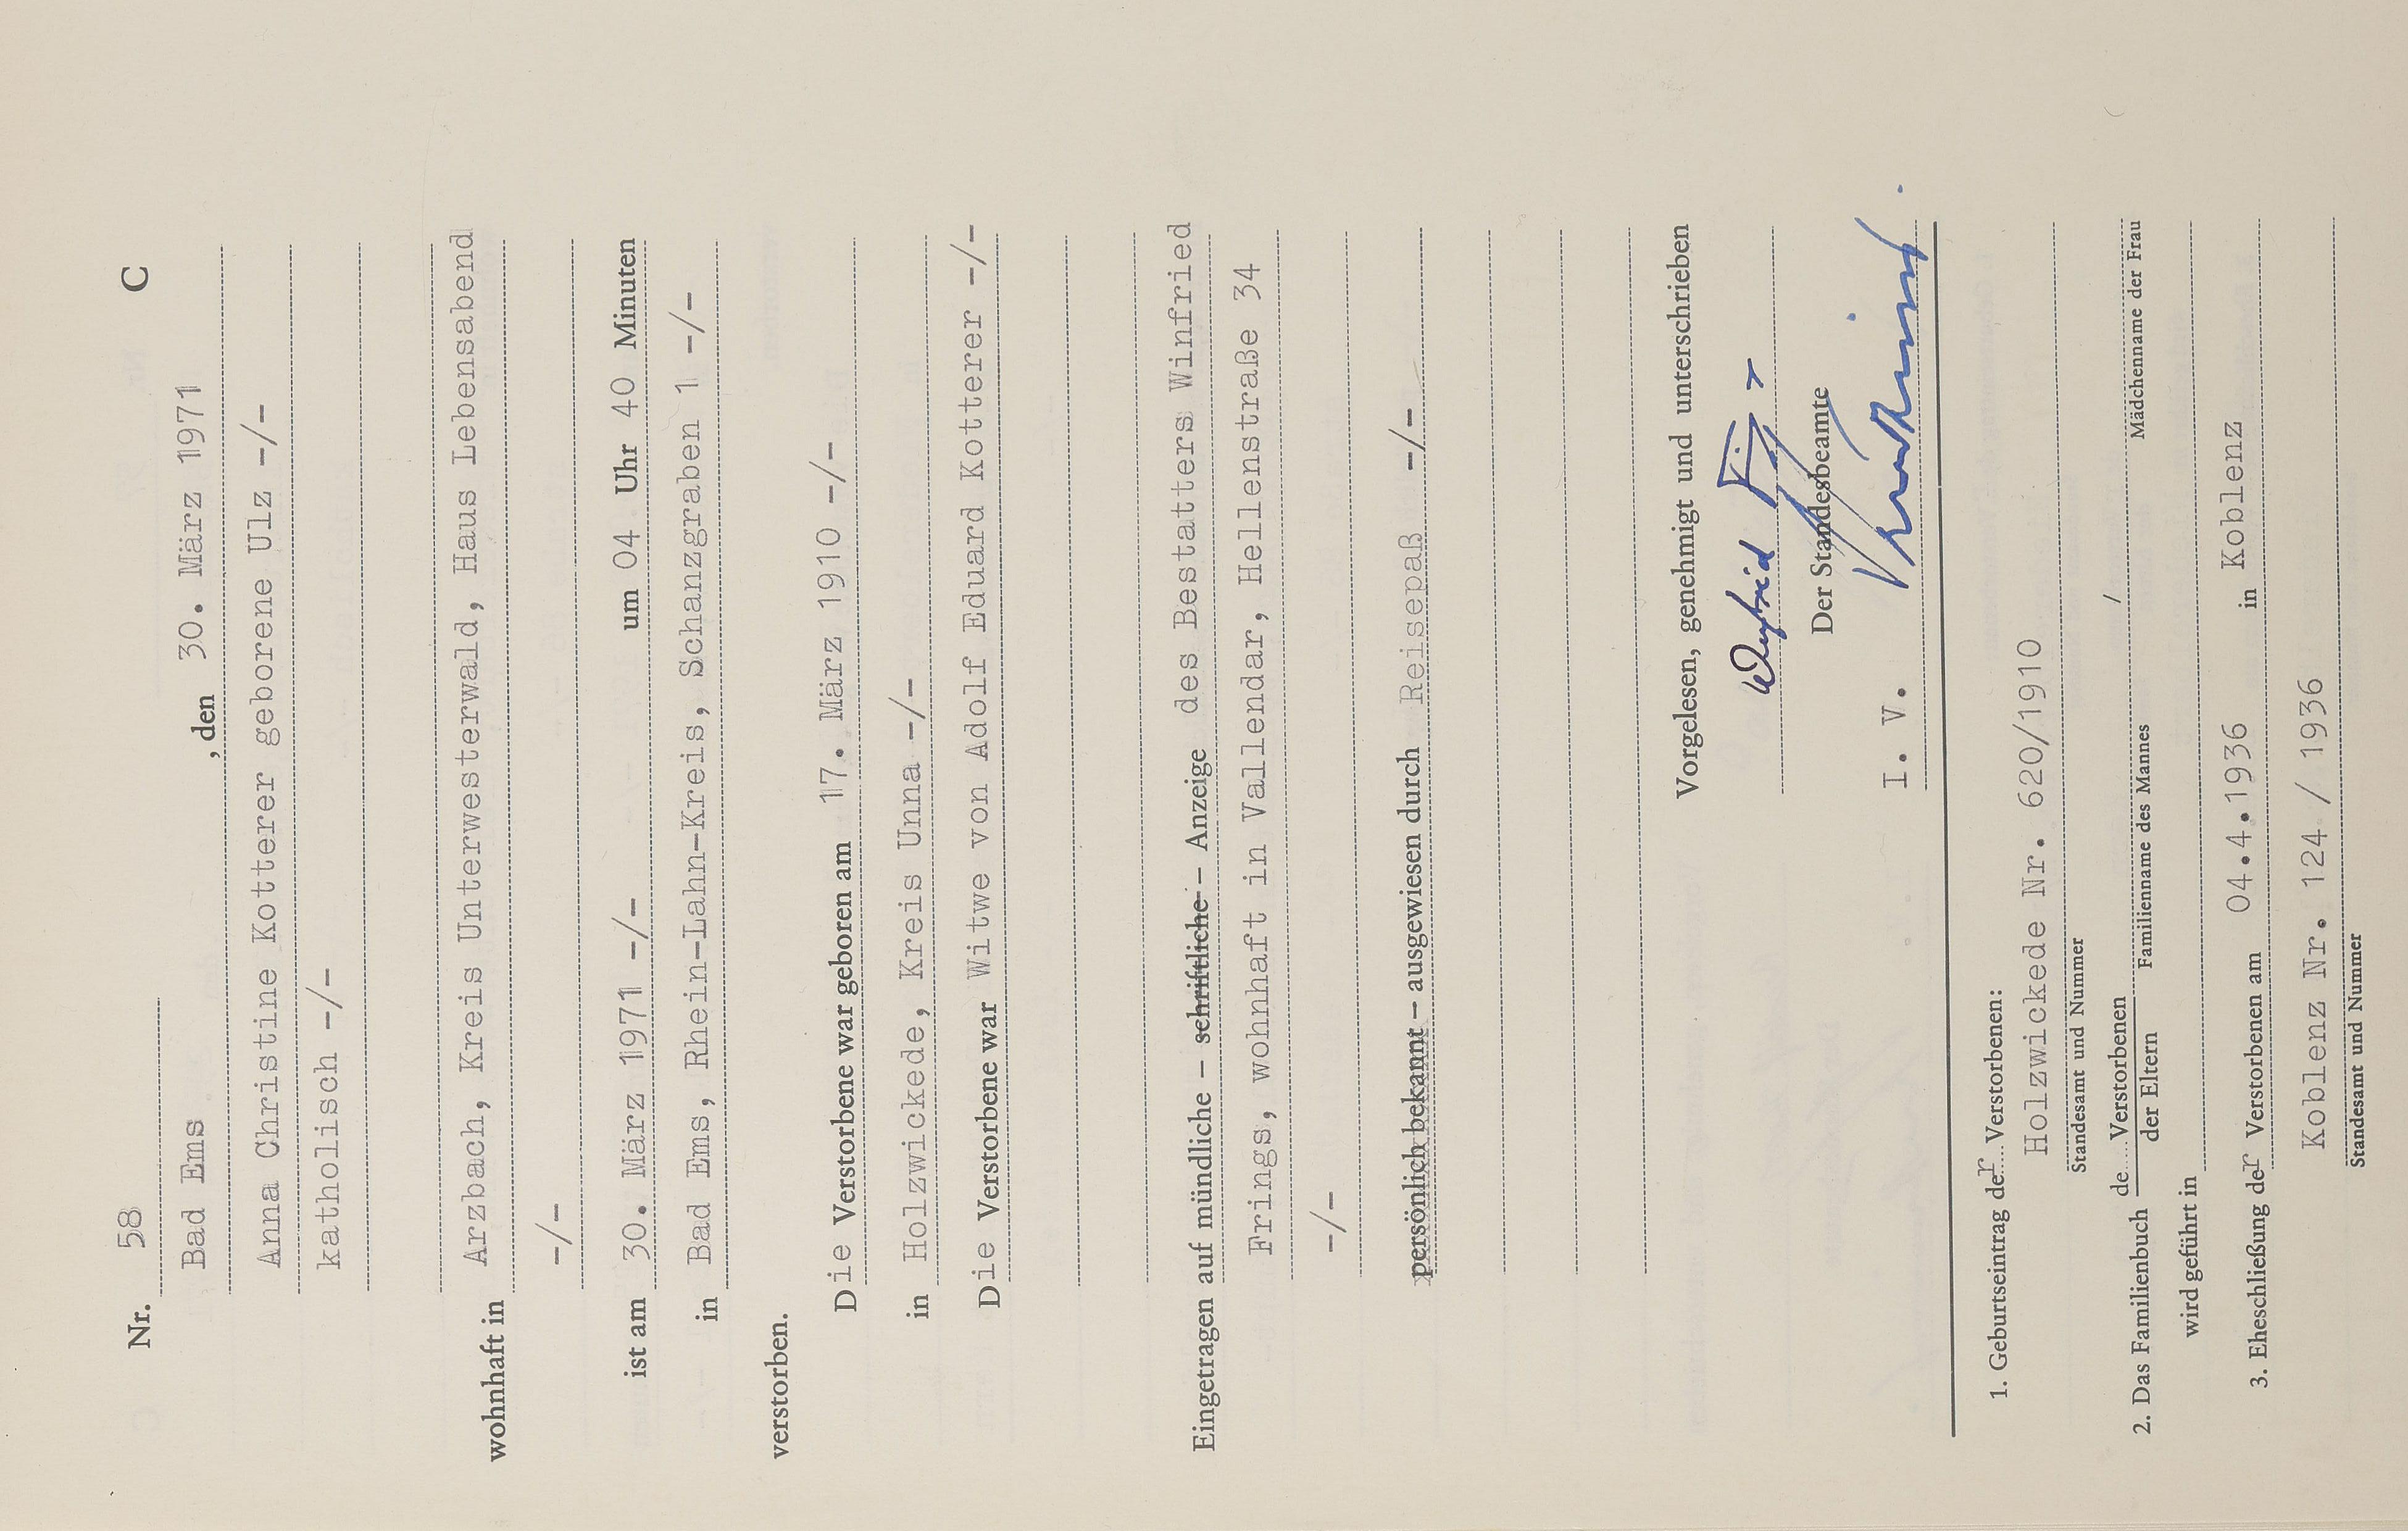 Nr. 58 C
Bad Ems , den 30. März 1971
Anna Christine Kotterer geborene Ulz -/-
katholisch -/-
wohnhaft in Arzbach, Kreis Unterwesterwald, Haus Lebensabend
-/-
ist am 30. März 1971 -/- um 04 Uhr 40 Minuten
in Bad Ems, Rhein-Lahn-Kreis, Schanzgraben 1 -/-
verstorben.
Die Verstorbene war geboren am 17. März 1910 -/-
in Holzwickede, Kreis Unna -/-
Die Verstorbene war Witwe von Adolf Eduard Kotterer -/-
Eingetragen auf mündliche – schriftliche – Anzeige des Bestatters Winfried
Frings, wohnhaft in Vallendar, Hellenstraße 34
-/-
persönlich bekannt – ausgewiesen durch Reisepaß -/-
Vorgelesen, genehmigt und unterschrieben
Winfried Frings
Der Standesbeamte
I. V.
1. Geburtseintrag der Verstorbenen:
Holzwickede Nr. 620/1910
Standesamt und Nummer
2. Das Familienbuch de Verstorbenen /
der Eltern Familienname des Mannes Mädchenname der Frau
wird geführt in
3. Eheschließung der Verstorbenen am 04.4.1936 in Koblenz
Koblenz Nr. 124 / 1936
Standesamt und Nummer